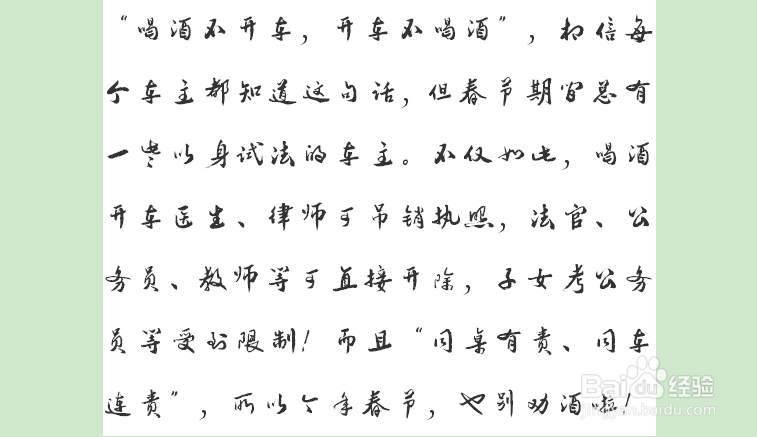 “喝酒不开车，开车不喝酒”，相信每
个车主都知道这句话，但春节期间总有
一些以身试法的车主。不仅如此，喝酒
开车医生、律师可吊销执照，法官、公
务员、教师等可直接开除，子女考公务
员等受到限制！而且“同桌有责、同车
连责”，所以个年春节，也别劝酒啦！
Baidu经验
jingyan.baidu.com